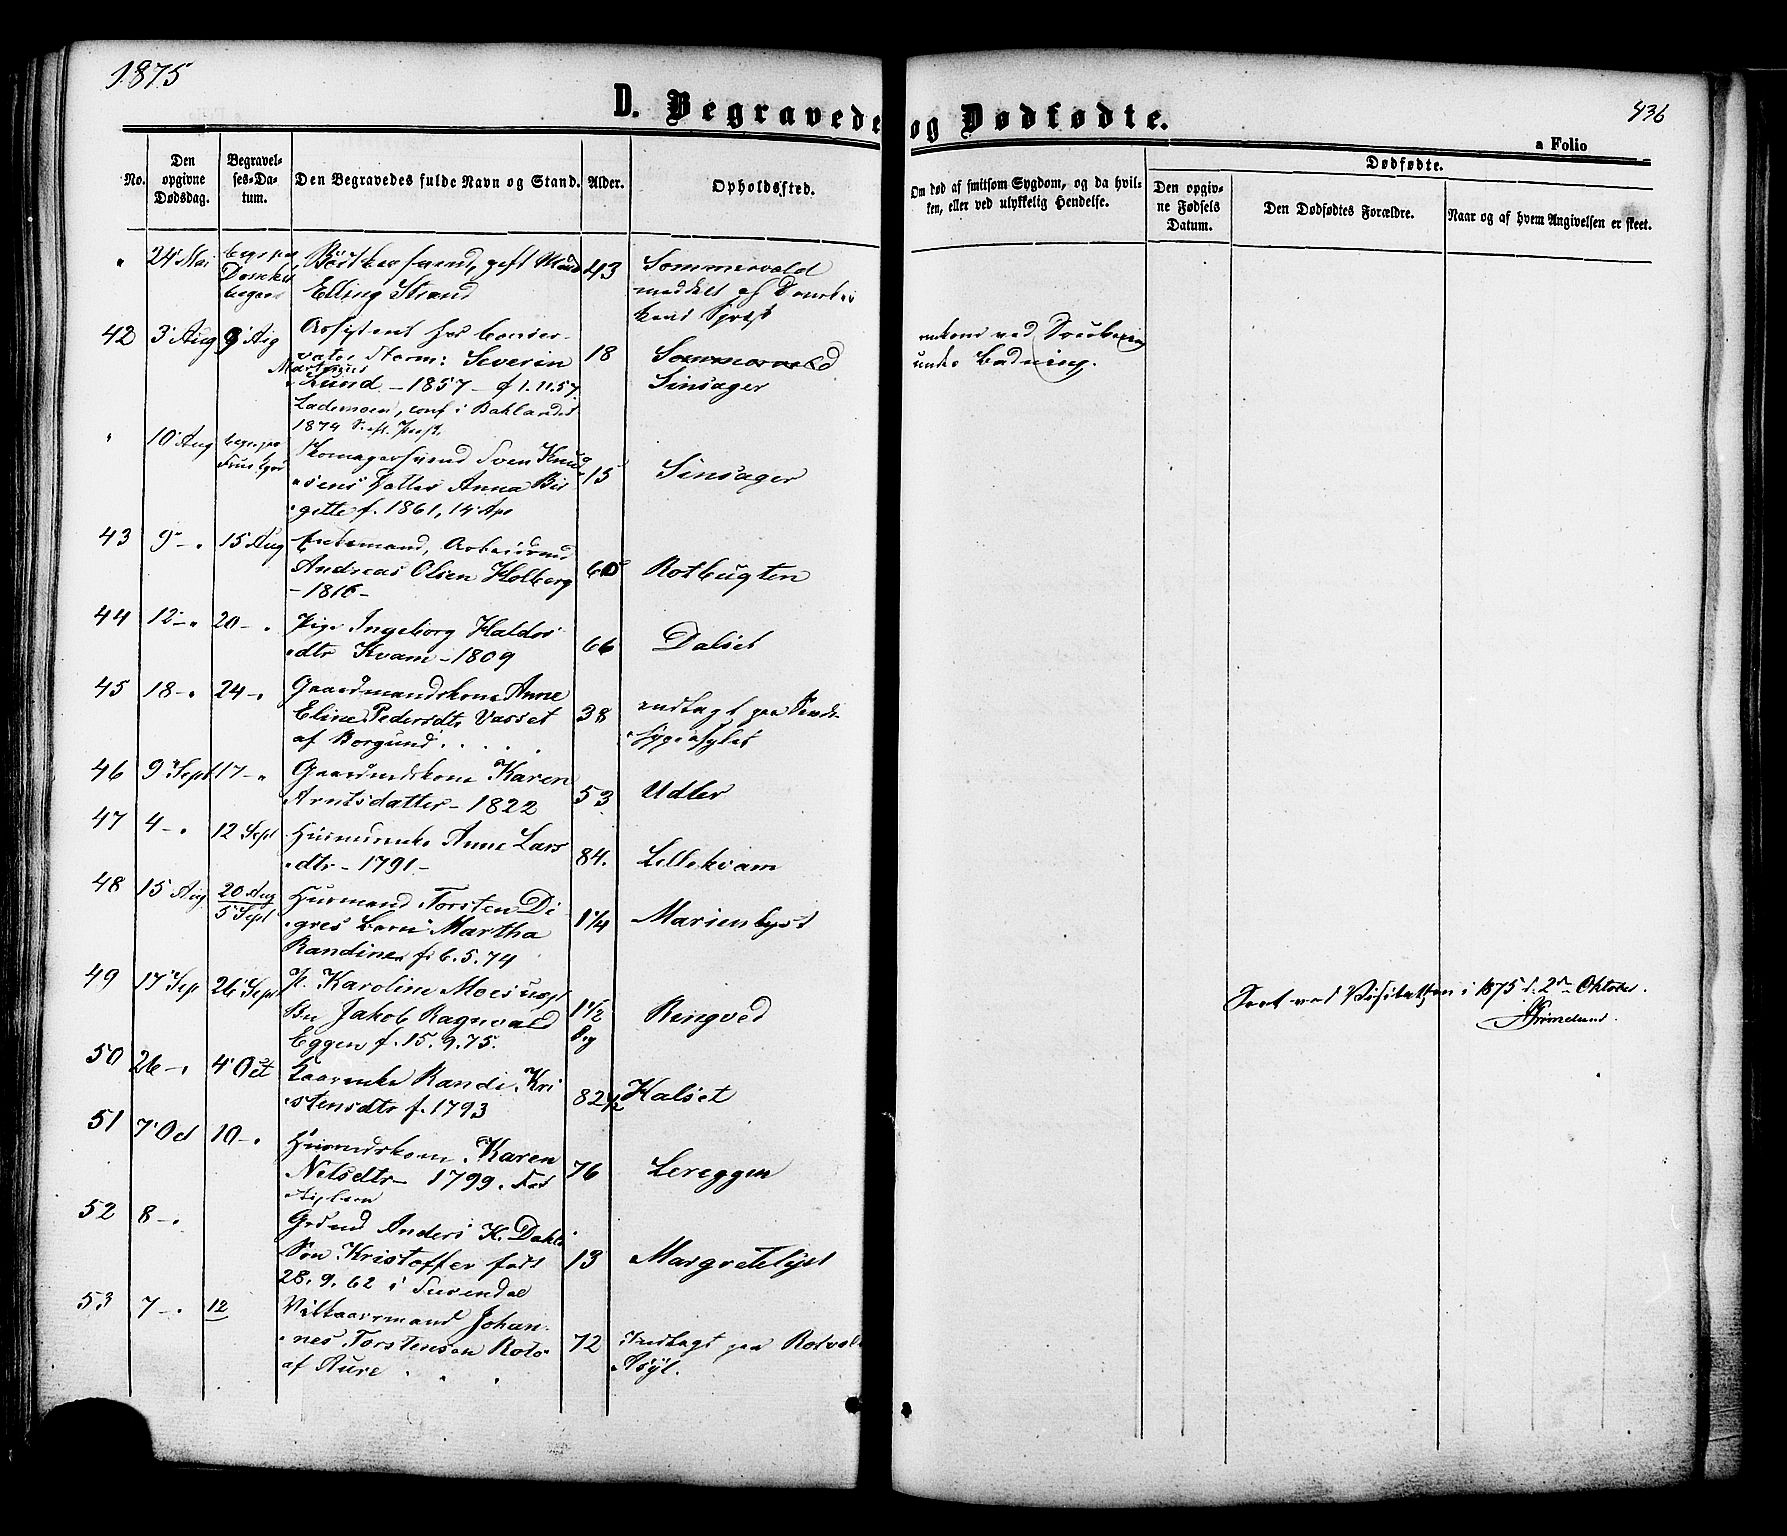 1875
436
D. Begravede og Dødfødte.
a Folio
No.
Den opgivne Dødsdag.
Begravelses-Datum.
Den Begravedes fulde Navn og Stand.
Alder.
Opholdssted.
Om død af smitsom Sygdom, og da hvilken, eller ved ulykkelig Hendelse.
Dødfødte.
Den opgivne Fødsels Datum.
Den Dødfødtes Forældre.
Naar og af hvem Angivelsen er skeet.
" 24 Mai
Elling Strand
43
Sommervold
meddelt af
42 3 Aug 9 Aug
Assistent hos Conser-
vator Storm: Severin
Martinus
Lund - 1857 - f 1.11.57
Lademoen, conf i Baklandet
1874
18
Sommervold
Sinsager
omkom ved
under Badning.
" 10 Aug
Skomagersvend Sven Knud
sens Datter Anna Bir
gitte f. 1861, 14 Apr
15
Sinsager
43 9 - " 15 Aug
Andreas Olsen Holberg
- 1816 -
60
Rotbugten
44 12 - " 20 - "
Pige Ingeborg Haldor
dtr Kvam - 1809
66
Dalset
45 18 - " 24 - "
Gaardmandskone Anne
Eline Pedersdtr Vasset
af Borgund . . . .
38
indlagt paa
46 9 Sept 17 - "
Gaardmdskone Karen
Arntsdatter - 1822
53
Udler
47 4 - " 12 Sept
Husmandsenke Anne Lars
dtr - 1791 -
84.
Lillekvam
48 15 Aug 20 Aug
5 Sept
Husmand Torsten Di
gres Barn Martha
Randine f. 6.5.74
1 1/4
Marienlyst
49 17 Sep 26 Sept
P. Karoline Moes
Bn Jakob Ragnvald
Eggen f. 15.9.75.
1 1/2
Dg
Ringved
Seet ved Visitatsen i 1875 d. 2den Oktober.
50 26 - " 4 Oct
Randi Kri
stensdtr f. 1793
82 1/2
Halset
51 7 Oct 10 - "
Husmdskone Karen
Nilsdtr - 1799. Fat
76
Lereggen
52 8 - "
Anders K. Dahls
Søn Kristoffer født
28.9.62 i Surendal
13
Margretelyst
53 7 - " 12
Vilkaarsmand Johan
nes Torstensen Roto
af Aure . . .
72
Indlagt paa Rotvold
Asyl.